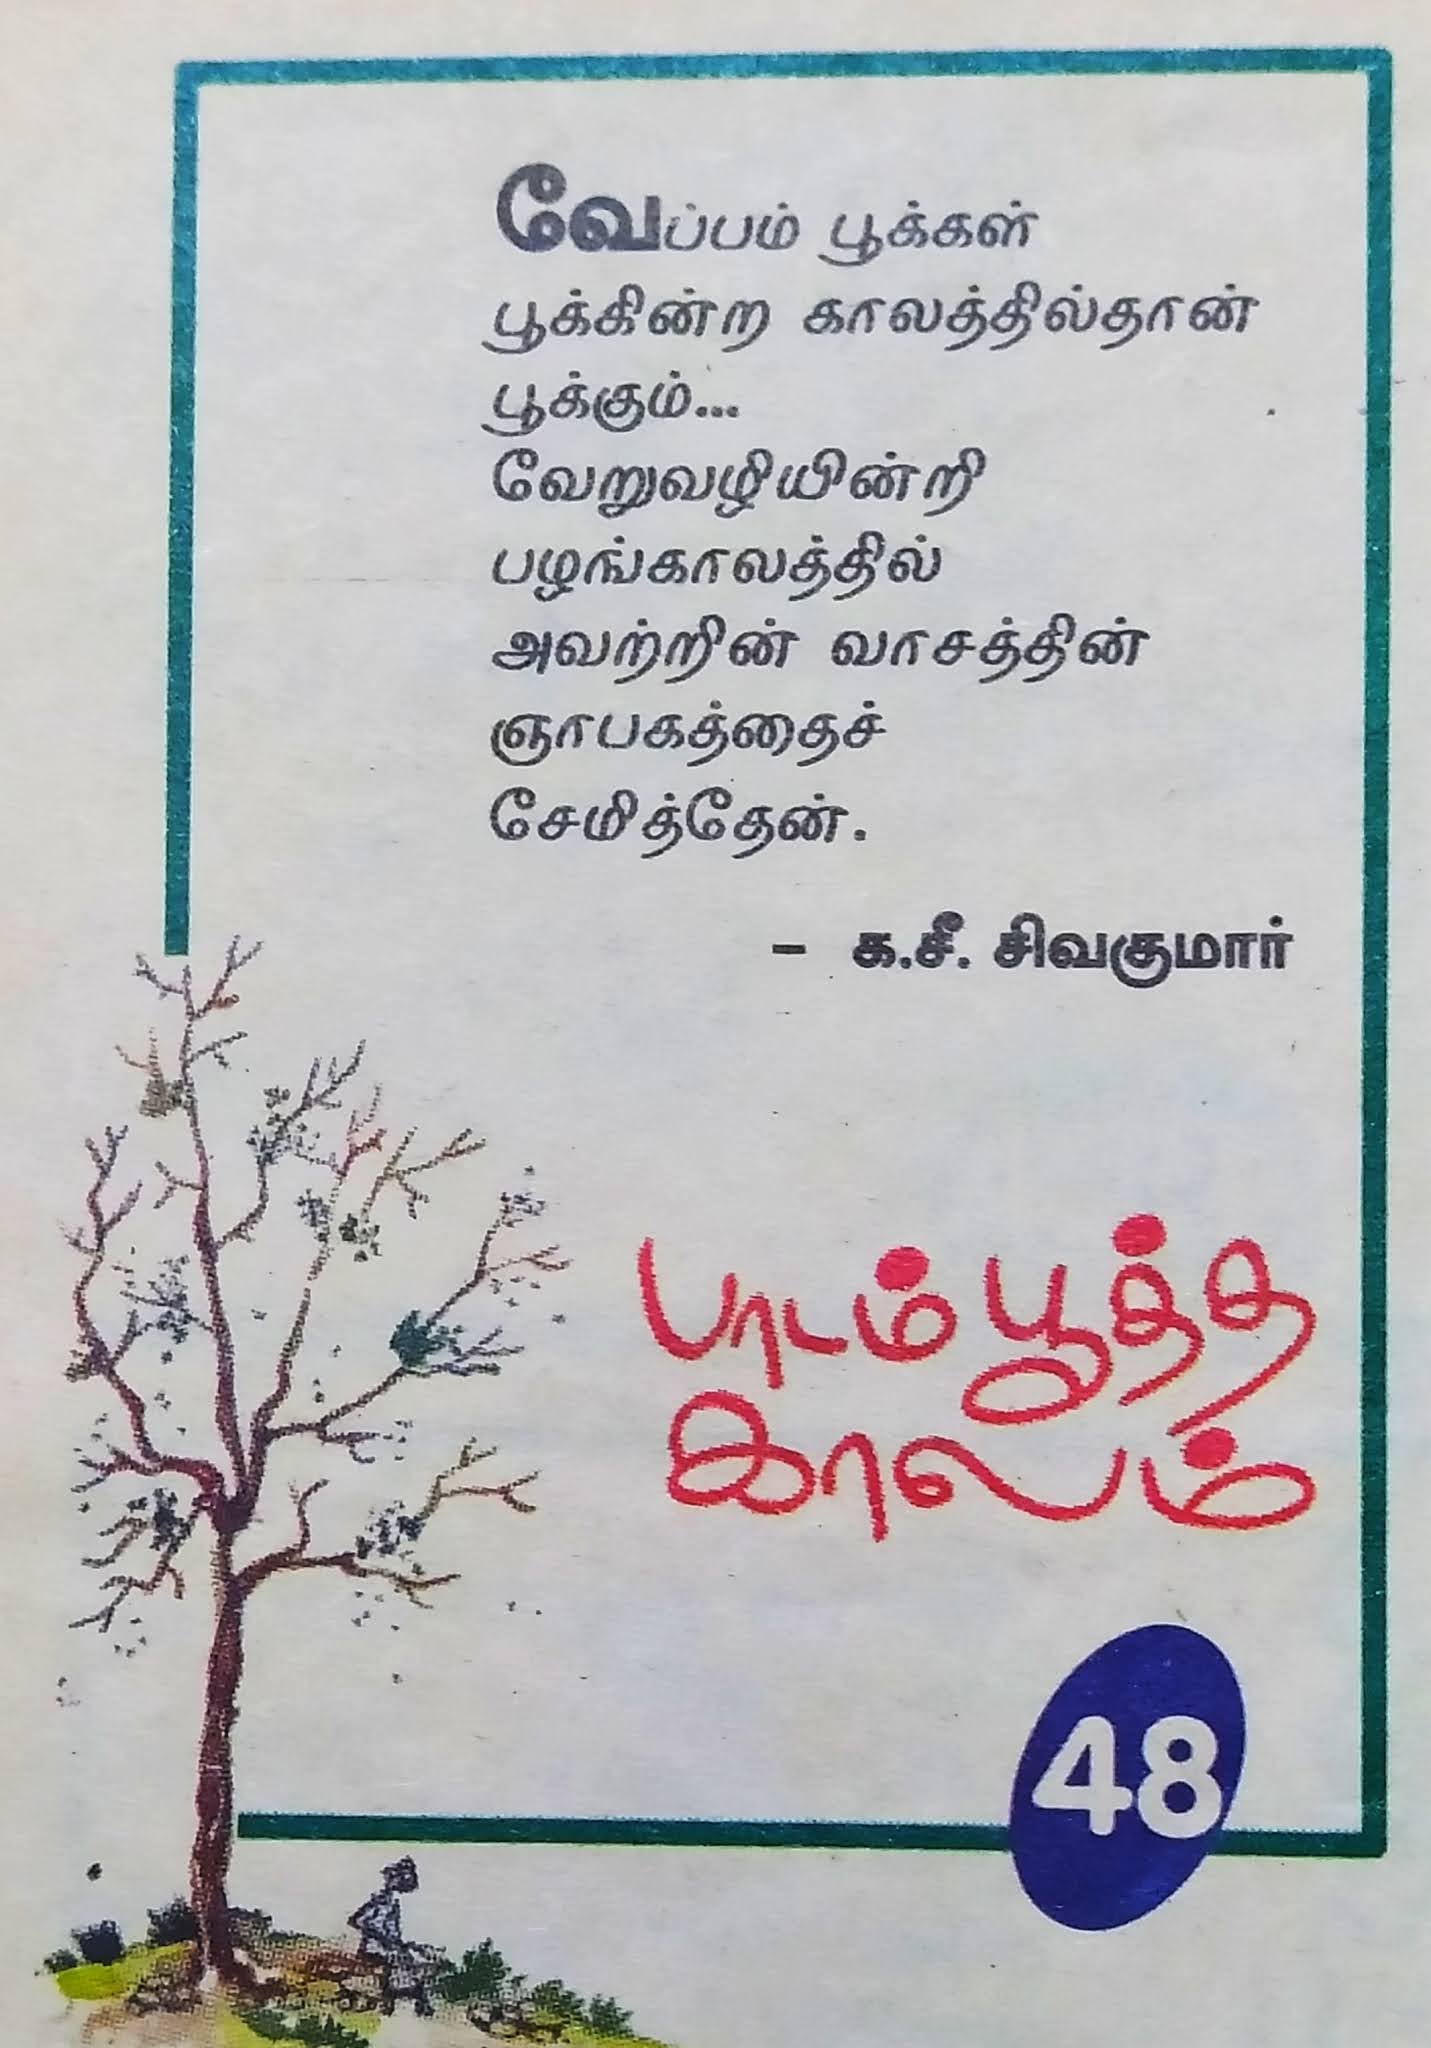 வேப்பம் பூக்கள்
பூக்கின்ற காலத்தில்தான்
பூக்கும்...
வேறுவழியின்றி
பழங்காலத்தில்
அவற்றின் வாசத்தின்
ஞாபகத்தைச்
சேமித்தேன்.
- க.சீ. சிவகுமார்
பாடம் பூத்த
காலம்
48